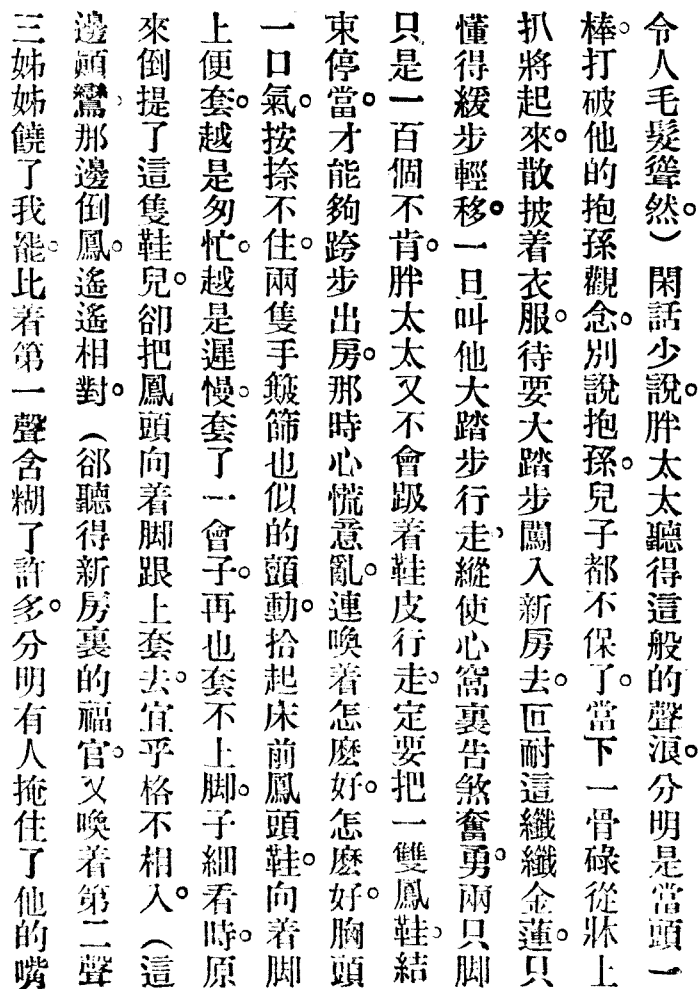 令人毛髮聳然。）閑話少說。胖太太聽得這般的聲浪。分明是當頭一
棒。打破他的抱孫觀念。別說抱孫。兒子都不保了。當下一骨碌從牀上
扒將起來。散披着衣服。待要大踏步闖入新房去。叵耐這纖纖金蓮。只
懂得緩步輕移。一旦叫他大踏步行走，縱使心窩裏告煞奮勇。兩只脚
只是一百個不肯。胖太太又不會趿着鞋皮行走。定要把一雙鳳鞋。結
束停當。才能夠跨步出房。那時心慌意亂。連喚着怎麽好。怎麽好。胸頭
一口氣。按捺不住。兩隻手籤篩也似的顫動。拾起床前鳳頭鞋。向着脚
上便套。越是匆忙。越是遲慢。套了一會子。再也套不上脚。子細看時。原
來倒提了這隻鞋兒。卻把鳳頭向着脚跟上套去。宜乎格不相入。（這
邊顚鸞，那邊倒鳳。遙遙相對。（郤聽得新房裏的福官。又喚着第二聲
三姊姊饒了我罷。比着第一聲含糊了許多。分明有人掩住了他的嘴